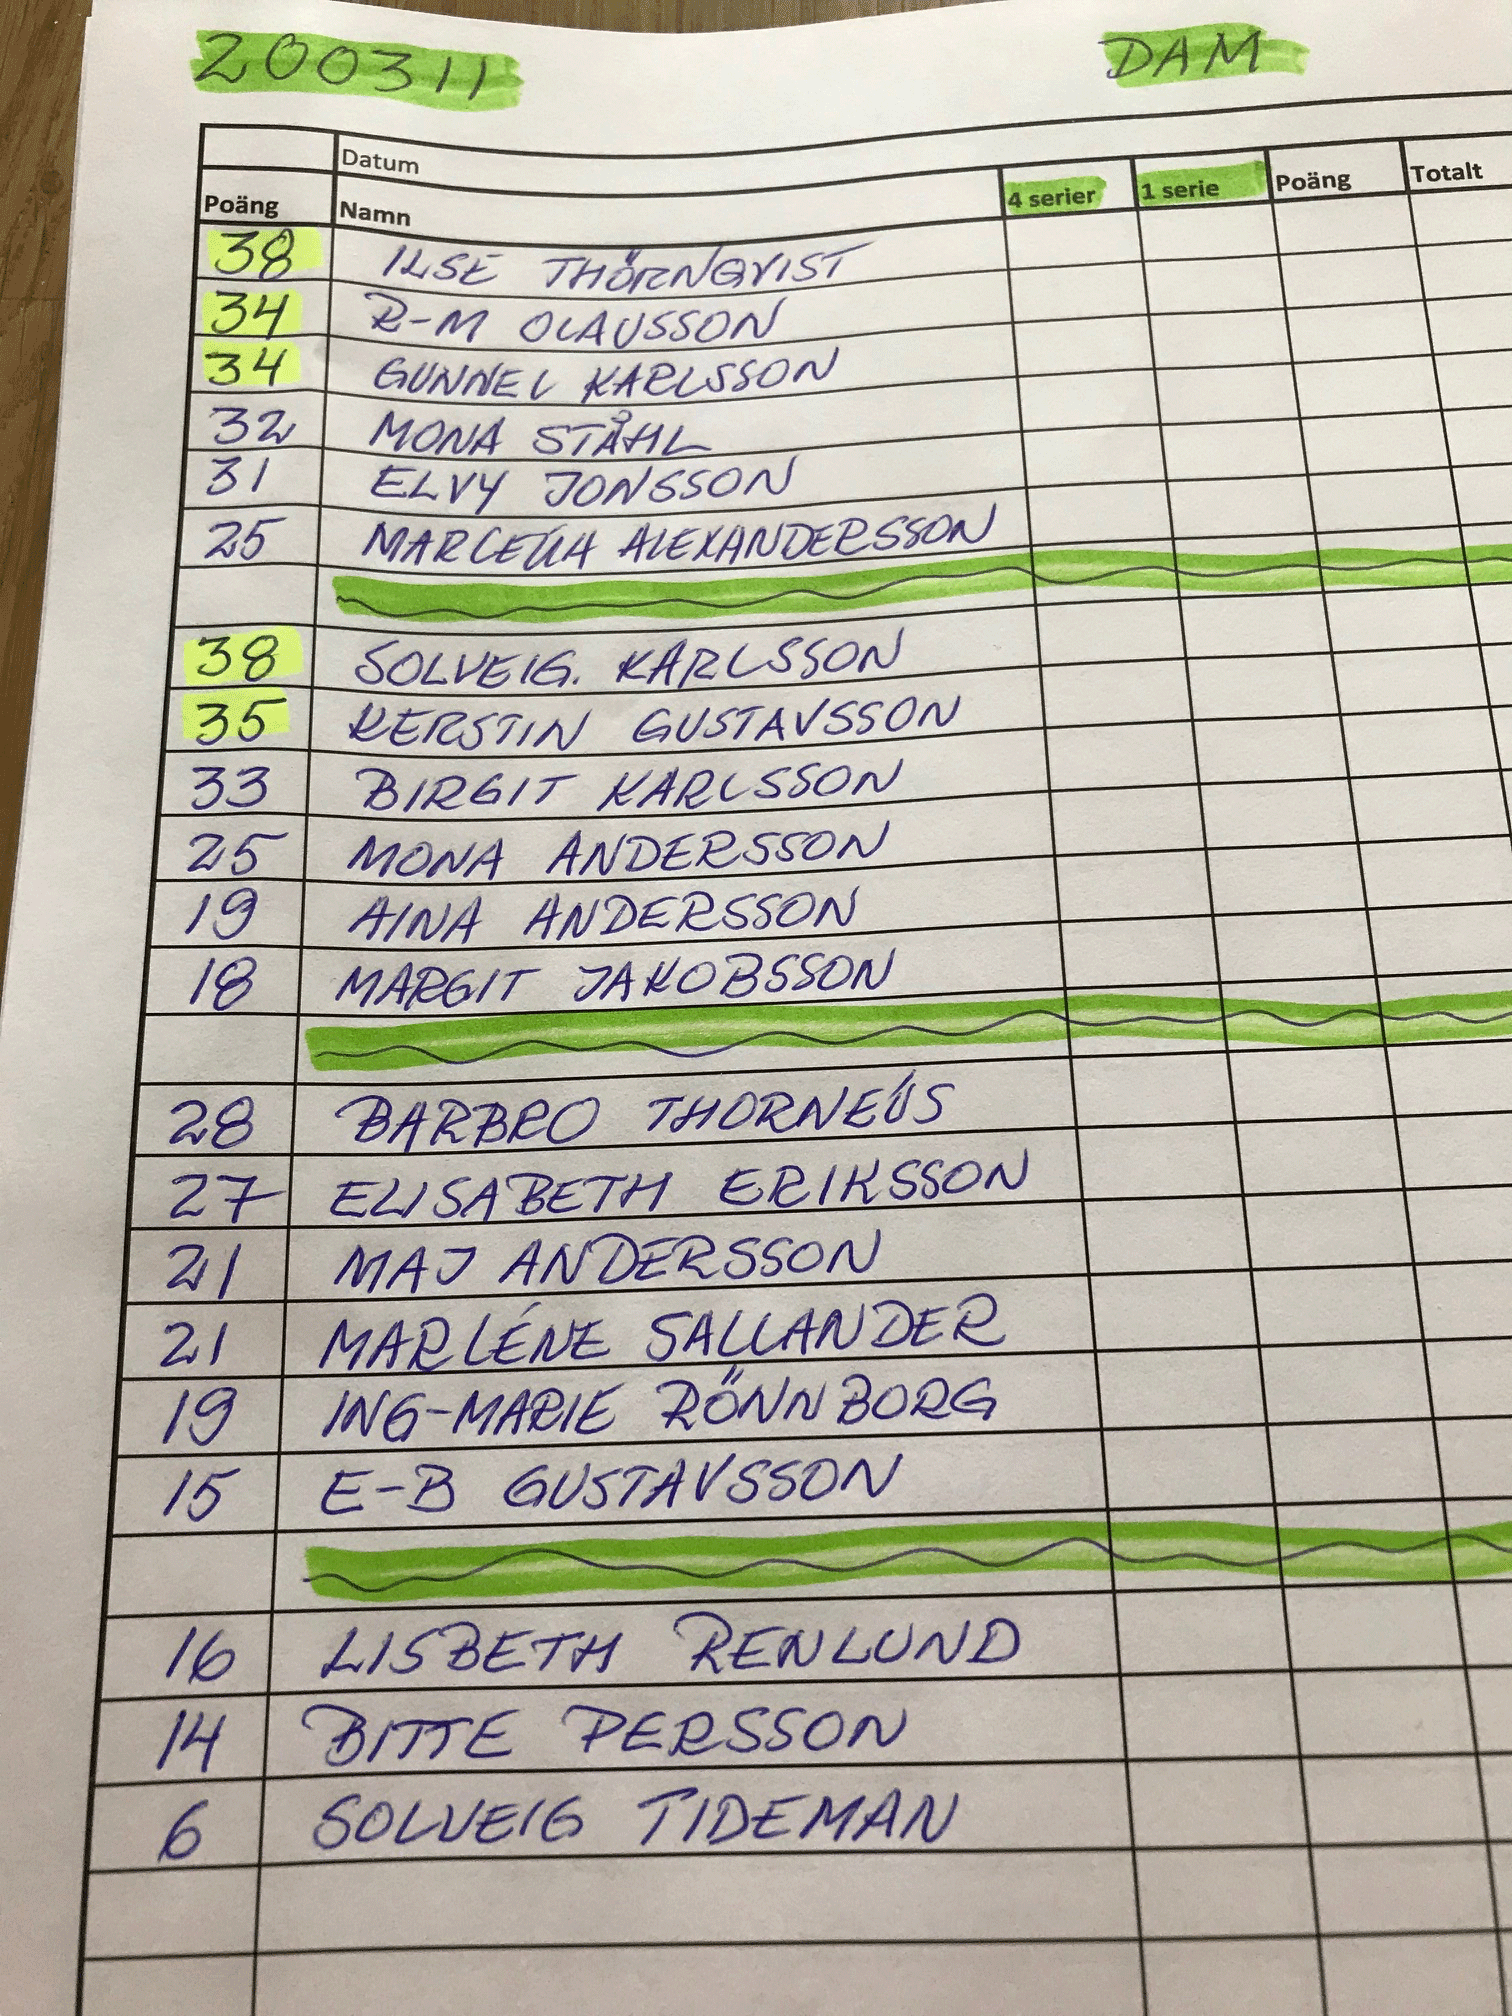 200311 DAM
Datum
Poäng Namn 4 serier 1 serie Poäng Totalt
38 ILSE THÖRNQVIST
34 R-M OLAUSSON
34 GUNNEL KARLSSON
32 MONA STÅHL
31 ELVY JONSSON
25 ALEXANDERSSON
38 SOLVEIG. KARLSSON
35 KERSTIN GUSTAVSSON
33 BIRGIT KARLSSON
25 MONA ANDERSSON
19 AINA ANDERSSON
18 MARGIT JAKOBSSON
28 BARBRO THORNEÚS
27 ELISABETH ERIKSSON
21 MAJ ANDERSSON
21 MARLÉNE SALLANDER
19 ING-MARIE RÖNNBORG
15 E-B GUSTAVSSON
16 LISBETH RENLUND
14 BITTE PERSSON
6 SOLVEIG TIDEMAN